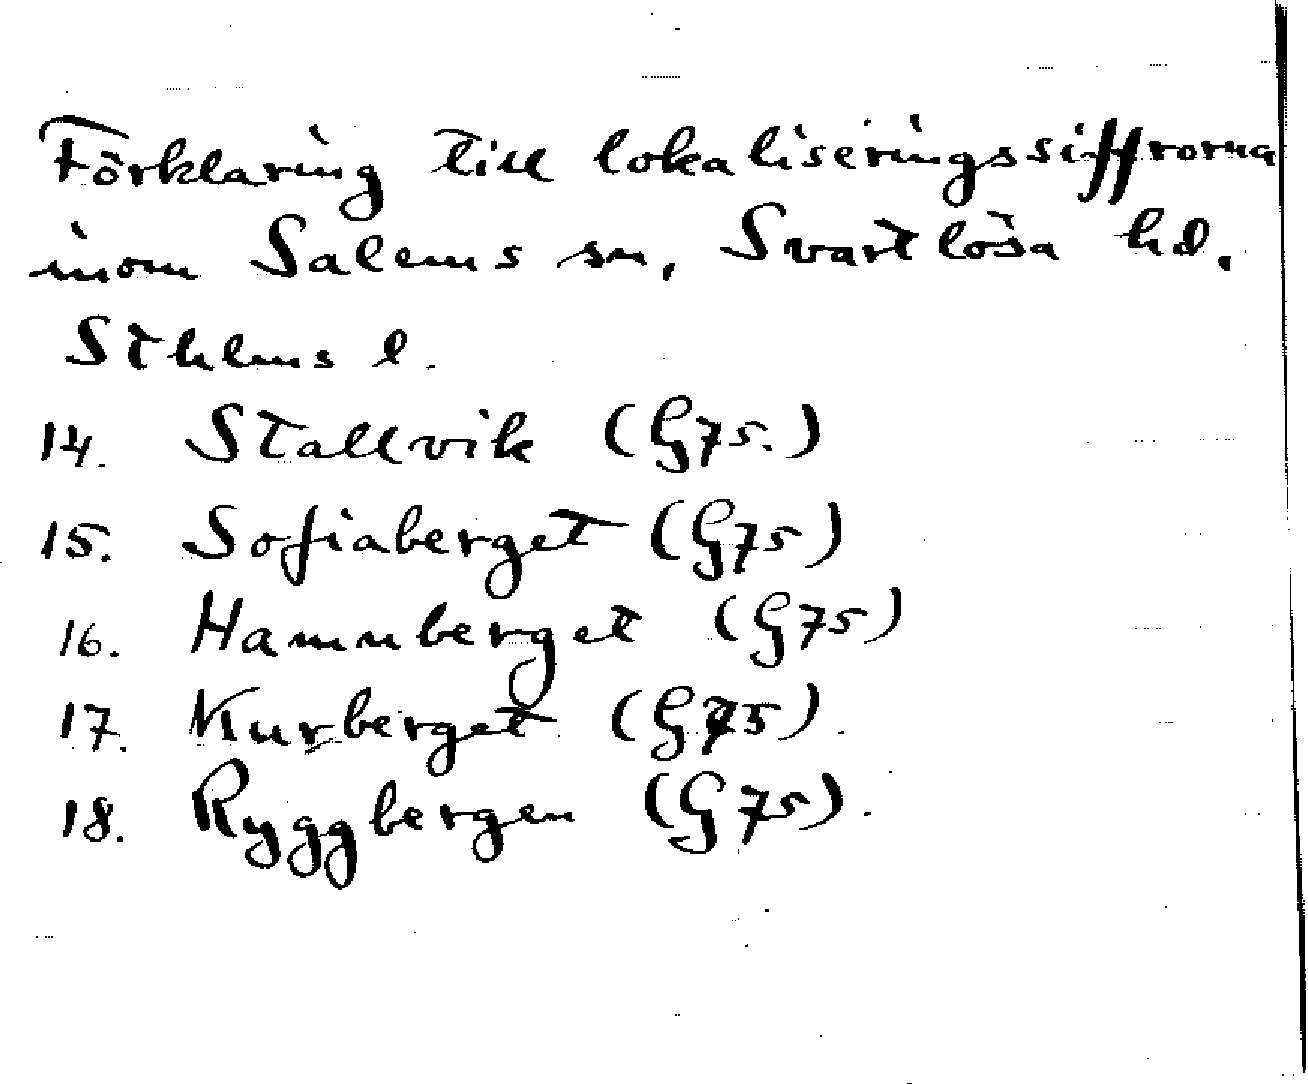 Förklaring till lokaliseringssiffrorna
inom Salems sn, Svartlösa hd.
Sthlms l.
14. Stallvik (G75.)
15. Sofiaberget (G75)
16. Hamnberget (G75)
17. Kurberget (G75).
18. Ryggbergen (G75).